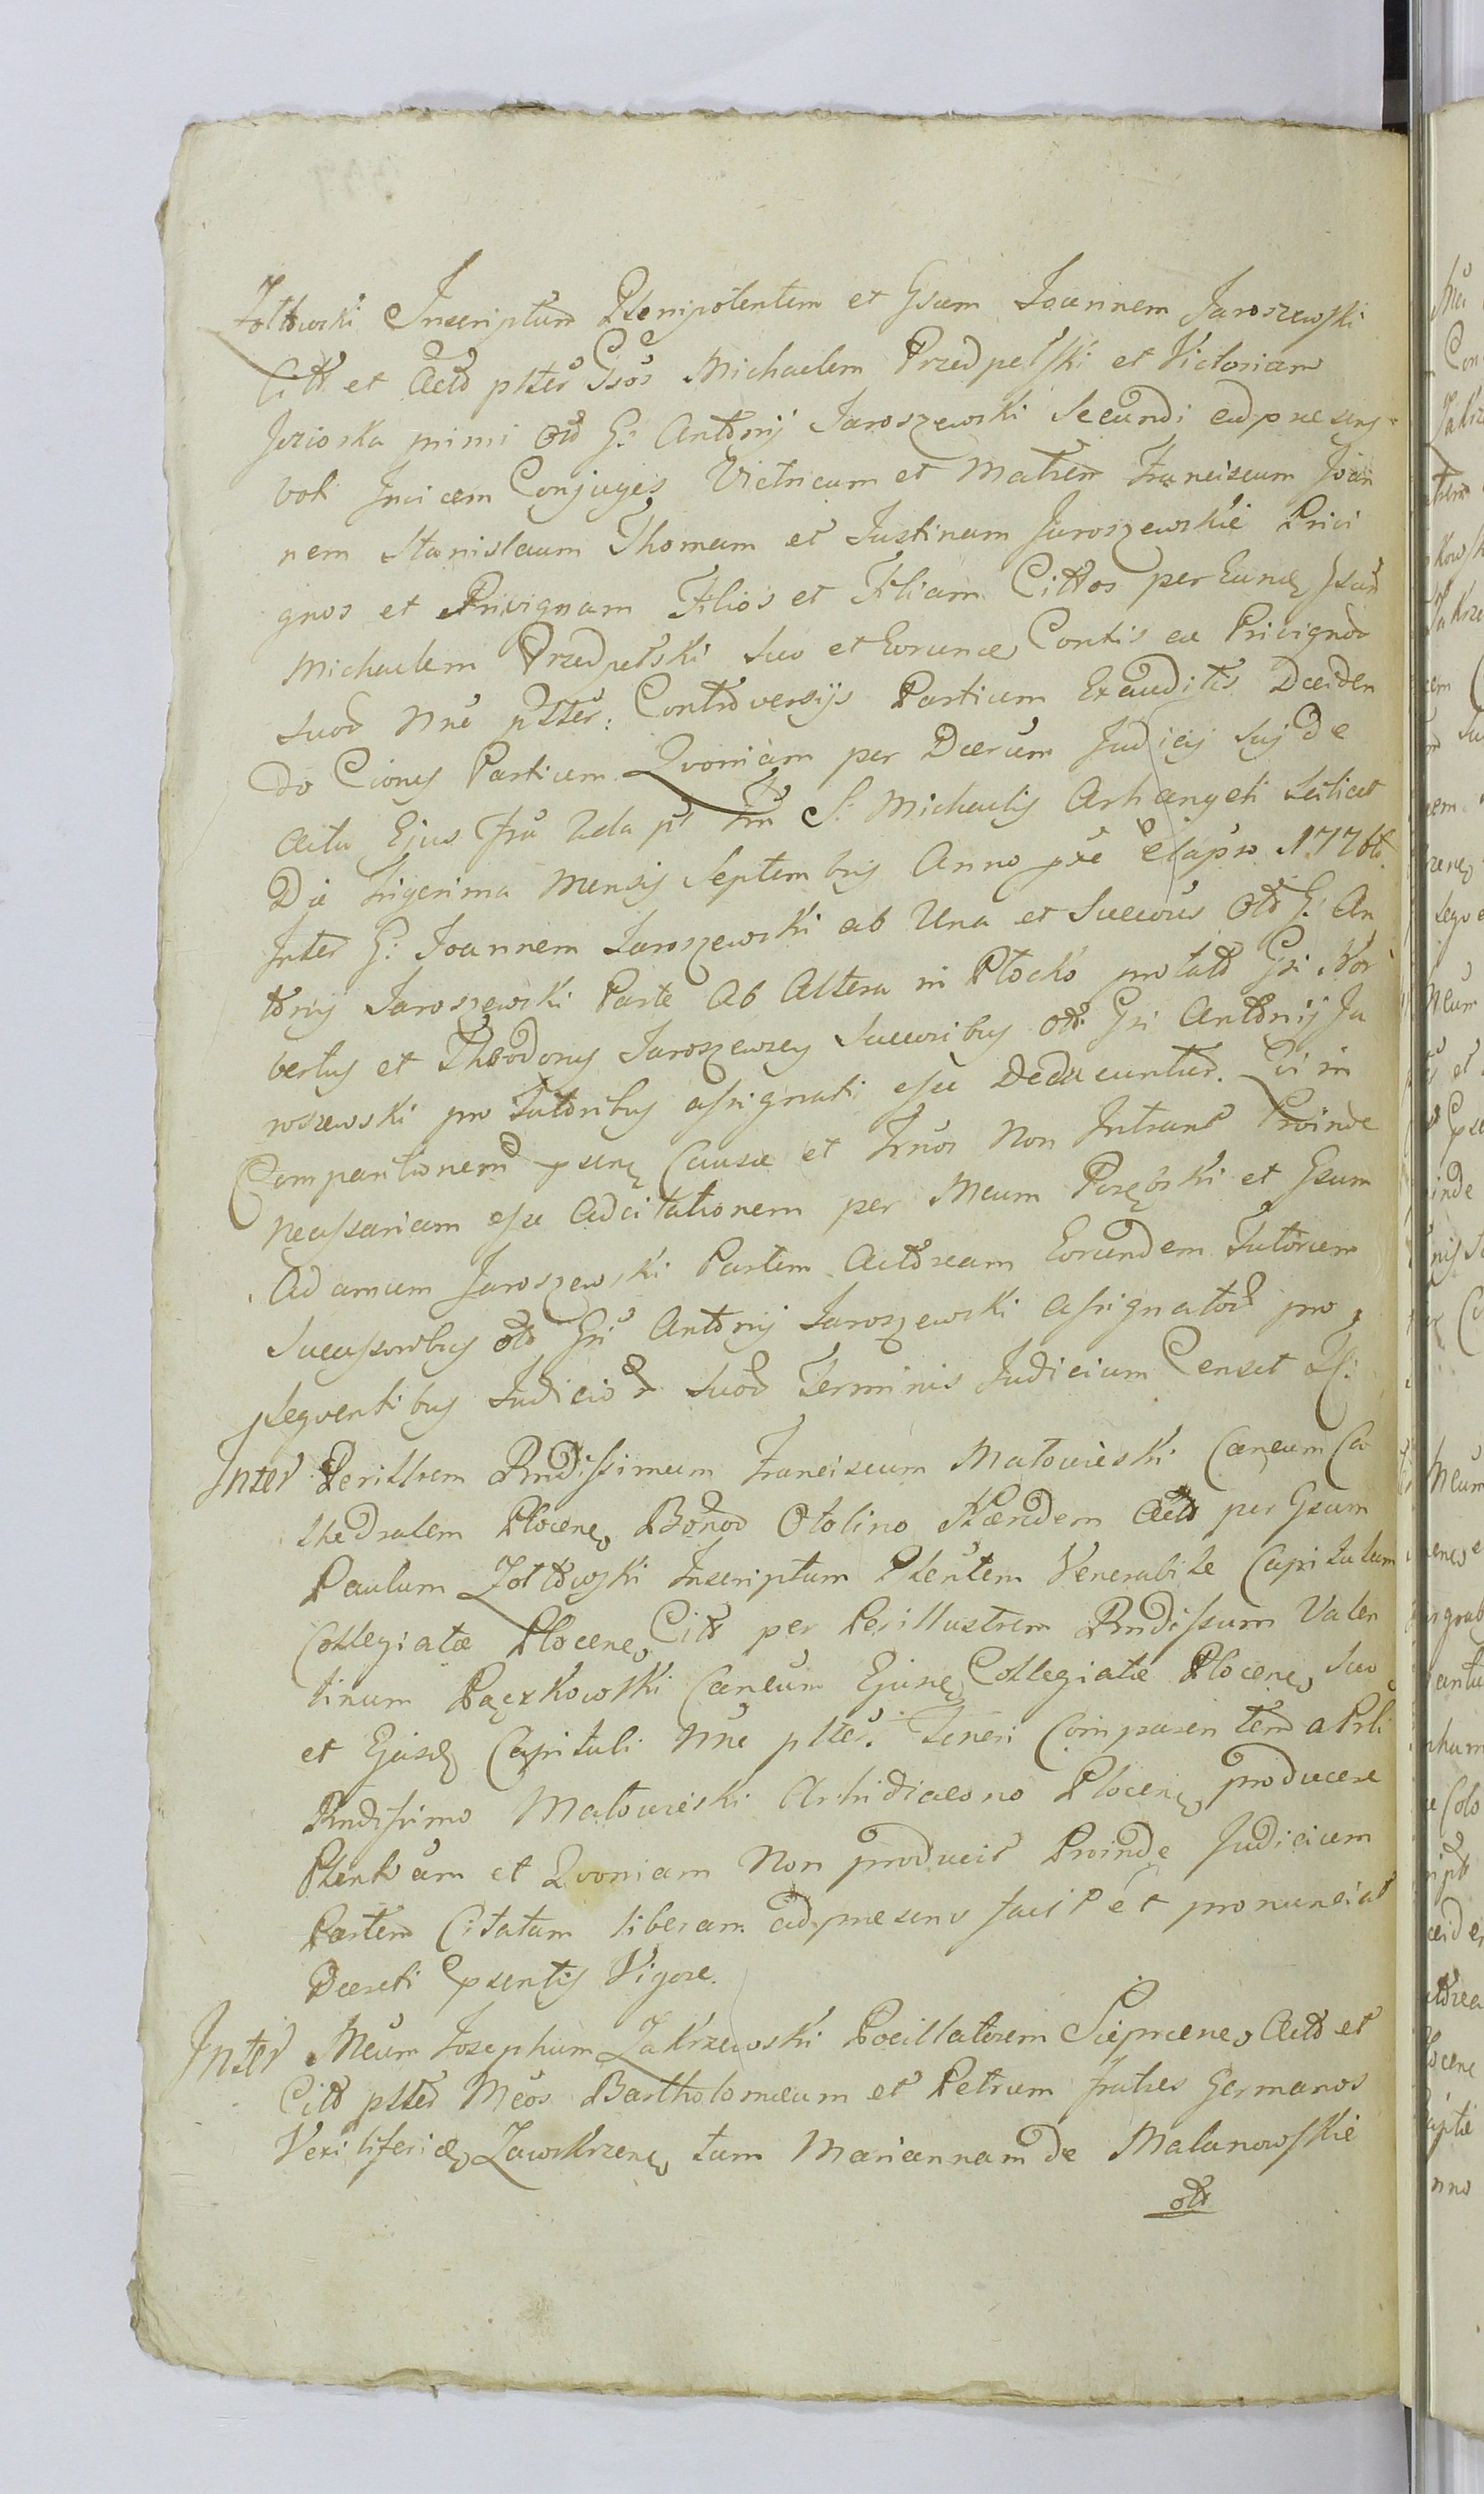 Zołtowski Inscriptum Plenipotentem et Gsum Joannem Jaroszewski
Citt et Actō plter Gsos Michaelem Przedpełski et Victoriam
Jezioska primi Otō G: Antōnij Jaroszewski Secundi adpresens
voti Invicem Conjuges Vitricum et Matrem Franciscum Joan
nem Stanislaum Thomam et Justinam Jaroszewskie Privi
gnos et Privignam Filios et Filiam Cittos per Eund Gsum
Michaelem Przedpełski Suo et Eorund Contis ac Privignor
Suor Nne plter: Controversijs Partium Exauditis Deciden
do Ciones Partium Qvoniam per Dcerum Judicij Suj de
Actu Ejus Fra 2da pt Fm S: Michaelis Arhangeli Scilicet
Die Trigesima Mensis Septembris Anno pte elapso 1776to.
Inter G: Joannem Jaroszewski ab Una et Succrus Otō G: An
tōnij Jaroszewski Parte Ab Altera in Płocko prolatō Gsi Nor
bertus et Theodorus Jaroszewscy Succribus Otō Gsi Antōnij Ja
roszewski pro Tutoribus assignati esse Deducuntur. Qvi in
Comparitionem psene Causæ et Trnos Non Intrant Proinde
Necessariam esse Adcitationem per Meum Porębski et Gsum
Adamum Jaroszewski Partem Actōream Eorundem Tutorum
Sucessoribus otō Gsi Antōnij Jaroszewski assignator pro
seqventibus Judicior Suor Terminis Judicium Censet
Inter Perillrem Rndissimum Franciscum Matowieski Cancum Ca
thedralem Plocene Bonor Otolino Hærdem Actō per Gsum
Paulum Zołtowski Inscriptum Plentem Venerabile Capitulum
Collegiatæ Plocene Citt per Perillustrem Rndissum Valen
tinum Pączkowski Cancum Ejusd Collegiatæ Plocene Suo
et Ejusd Capituli Nne plter. Teneri Comparentem a Prli
Rndissimo Matowieski Arhidiacono Plocene producere
Plentam et Qvoniam Non producit Proinde Judicium
Partem Citatam liberam adpresens facit et pronunciat
Dcereti psentis Vigore.
Inter Meum Josephum Zakrzewski Pocillatorem Sieprcene Actō et
Citt plter Meos Bartholomæum et Petrum fratres Germanos
Vexiliferid Zawskrzene tum Mariannam de Malanowskie
otō